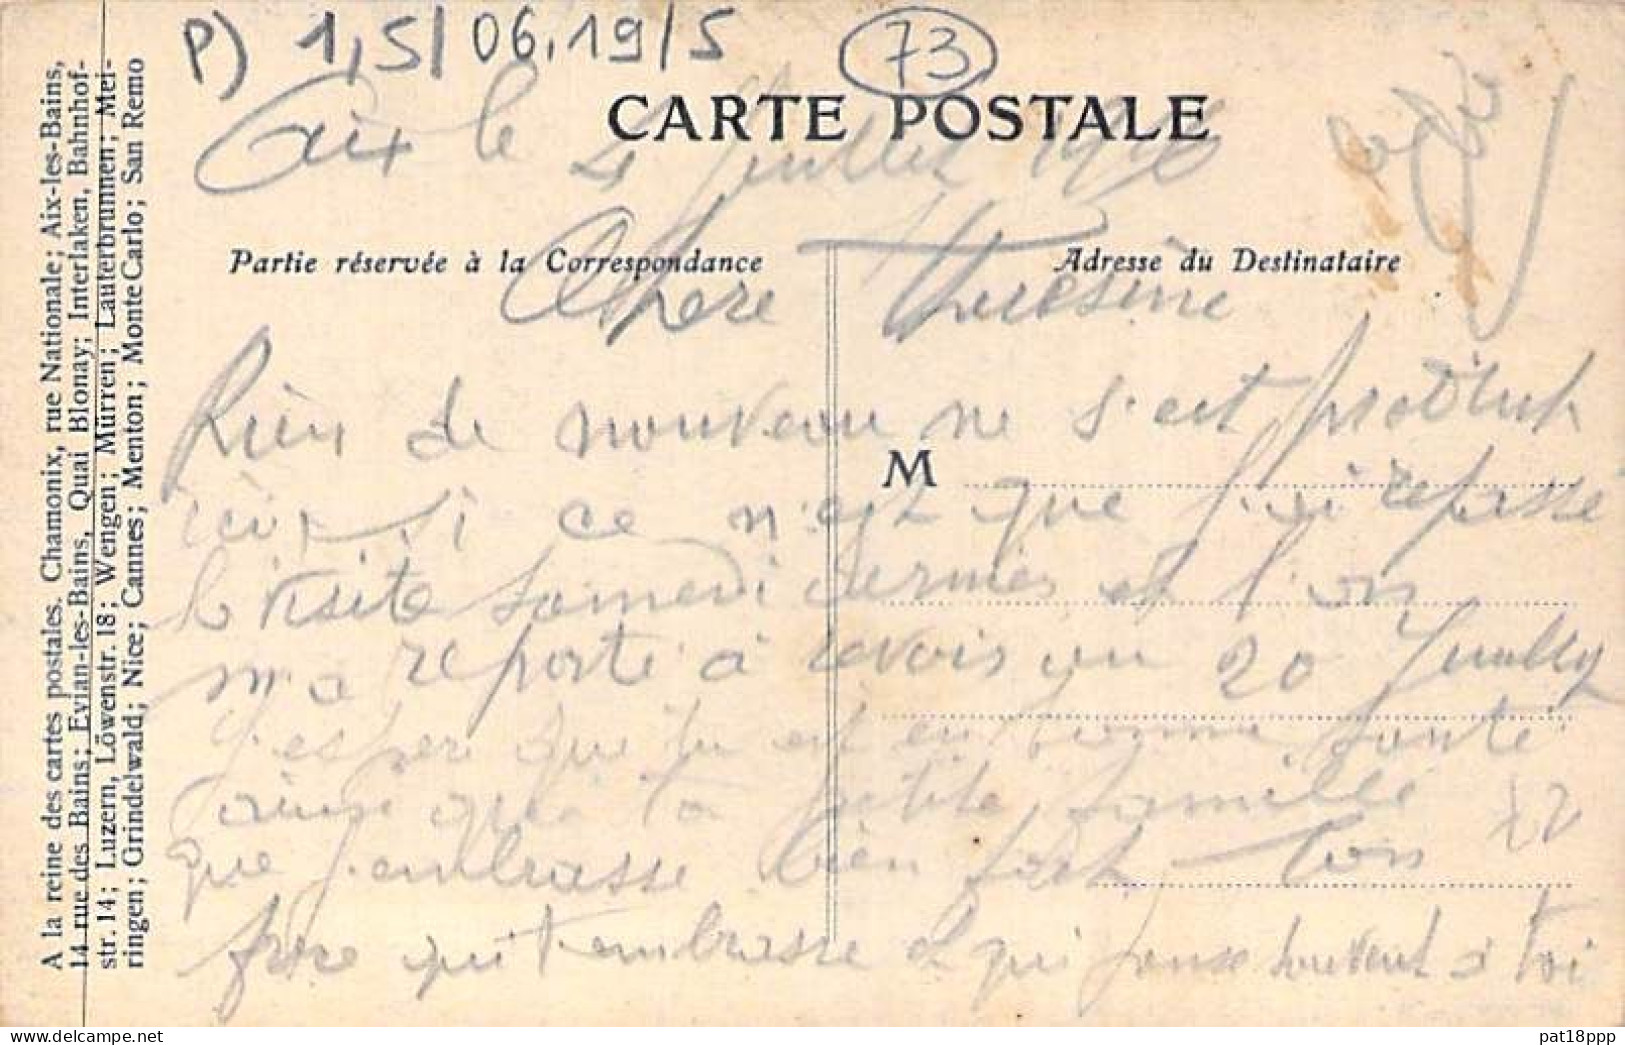 P) 1,5/06.19/5
73
CARTE POSTALE
Aix le 4 Juillet
Partie réservée à la Correspondance
Adresse du Destinataire
Chere
Rien de nouveau ne s'est produit
M
si ce n'est que j'ai repassé
la visite samedi dernier et l'on
m'a reporté à revoir au 20 Juillet
J'espere que tu est en bonne santé
ainsi que ta petite famille
que j'embrasse bien fort Ton
frère qui t'embrasse et qui pense souvent a toi
A la reine des cartes postales. Chamonix, rue Nationale; Aix-les-Bains,
14 rue des Bains; Evian-les-Bains, Quai Blonay; Interlaken, Bahnhof-
str. 14; Luzern, Löwenstr. 18; Wengen; Mürren; Lauterbrunnen; Mei-
ringen; Grindelwald; Nice; Cannes; Menton; Monte Carlo; San Remo
pat18ppp